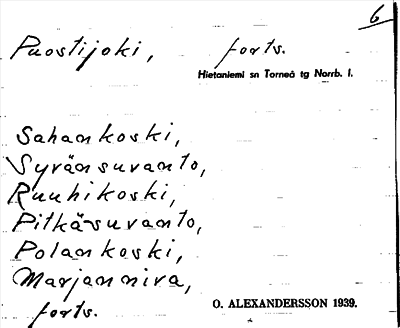 6
Puostijoki, forts.
Hietaniemi sn Torneå tg Norrb. l.
Sahankoski,
Syvänsuvanto,
Ruuhikoski,
Pitkäsuvanto,
Polankoski,
Marjanniva,
forts.
O. ALEXANDERSSON 1939.